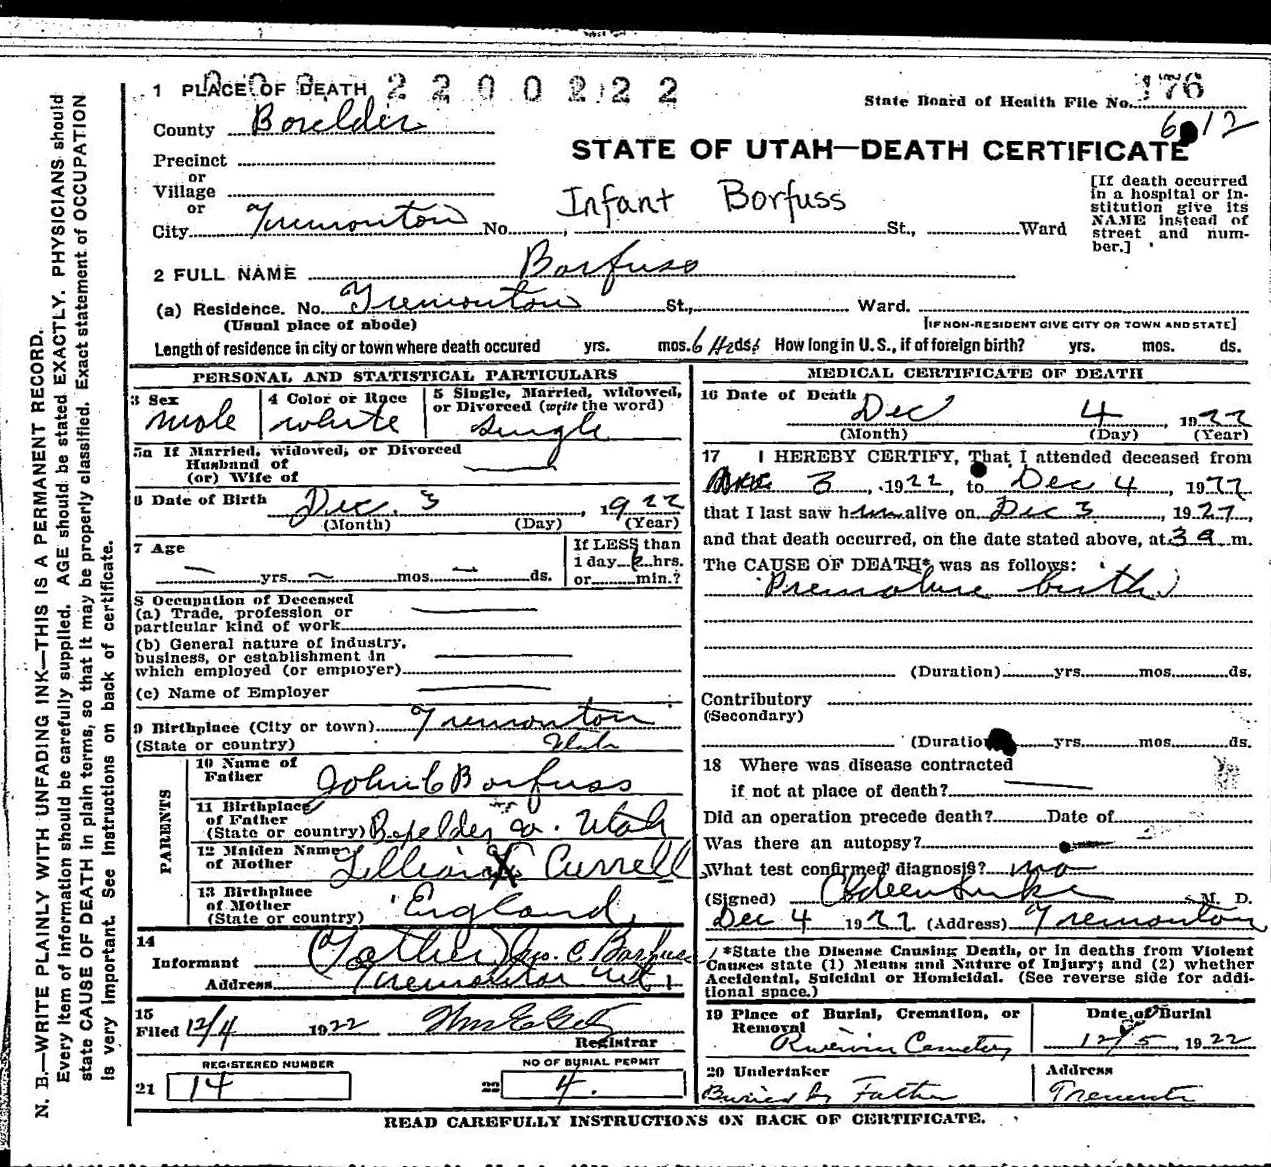 1 PLACE OF DEATH 2200222
State Board of Health File No. 176
6 12
County Boxelder
STATE OF UTAH—DEATH CERTIFICATE
Precinct
or
Village
or
City Tremonton No. , St., Ward
Infant Borfuss
[If death occurred
in a hospital or in-
stitution give its
NAME instead of
street and num-
ber.]
2 FULL NAME Borfuss
(a) Residence. No. Tremonton St., Ward.
(Usual place of abode)
[IF NON-RESIDENT GIVE CITY OR TOWN AND STATE]
Length of residence in city or town where death occured yrs. mos. 6 Hrs ds. How long in U.S., if of foreign birth? yrs. mos. ds.
PERSONAL AND STATISTICAL PARTICULARS
3 Sex
male
4 Color or Race
white
5 Single, Married, widowed,
or Divorced (write the word)
Single
5a If Married, widowed, or Divorced
Husband of
(or) Wife of
6 Date of Birth Dec. 3, 1922
(Month) (Day) (Year)
7 Age
yrs. mos. ds.
If LESS than
1 day hrs.
or min.?
8 Occupation of Deceased
(a) Trade, profession or
particular kind of work
(b) General nature of industry,
business, or establishment in
which employed (or employer)
(c) Name of Employer
9 Birthplace (City or town) Tremonton
(State or country) Utah
PARENTS
10 Name of
Father John C Borfuss
11 Birthplace
of Father
(State or country) Boxelder Co. Utah
12 Maiden Name
of Mother Lillian Currell
13 Birthplace
of Mother
(State or country) England
14
Informant (Father) Jno. C Borfuss
Address Tremonton Ut
15
Filed 12/4 1922 Wm E Getz
Registrar
REGISTERED NUMBER
21 14
NO OF BURIAL PERMIT
22 4.
MEDICAL CERTIFICATE OF DEATH
16 Date of Death
Dec 4, 1922
(Month) (Day) (Year)
17 I HEREBY CERTIFY, That I attended deceased from
Dec 3, 1922, to Dec 4, 1922
that I last saw him alive on Dec 3, 1922,
and that death occurred, on the date stated above, at 3 a m.
The CAUSE OF DEATH* was as follows:
Premature birth
(Duration) yrs. mos. ds.
Contributory
(Secondary)
(Duration) yrs. mos. ds.
18 Where was disease contracted
if not at place of death?
Did an operation precede death? Date of
Was there an autopsy?
What test confirmed diagnosis? no
(Signed) M. D.
Dec 4 1922 (Address) Tremonton
*State the Disease Causing Death, or in deaths from Violent
Causes state (1) Means and Nature of Injury; and (2) whether
Accidental, Suicidal or Homicidal. (See reverse side for addi-
tional space.)
19 Place of Burial, Cremation, or
Removal
Riverview Cemetery
Date of Burial
12/5, 1922
20 Undertaker
Buried by Father
Address
Tremonton
READ CAREFULLY INSTRUCTIONS ON BACK OF CERTIFICATE.
N. B.—WRITE PLAINLY WITH UNFADING INK—THIS IS A PERMANENT RECORD.
Every item of information should be carefully supplied. AGE should be stated EXACTLY. PHYSICIANS should
state CAUSE OF DEATH in plain terms, so that it may be properly classified. Exact statement of OCCUPATION
is very important. See Instructions on back of certificate.